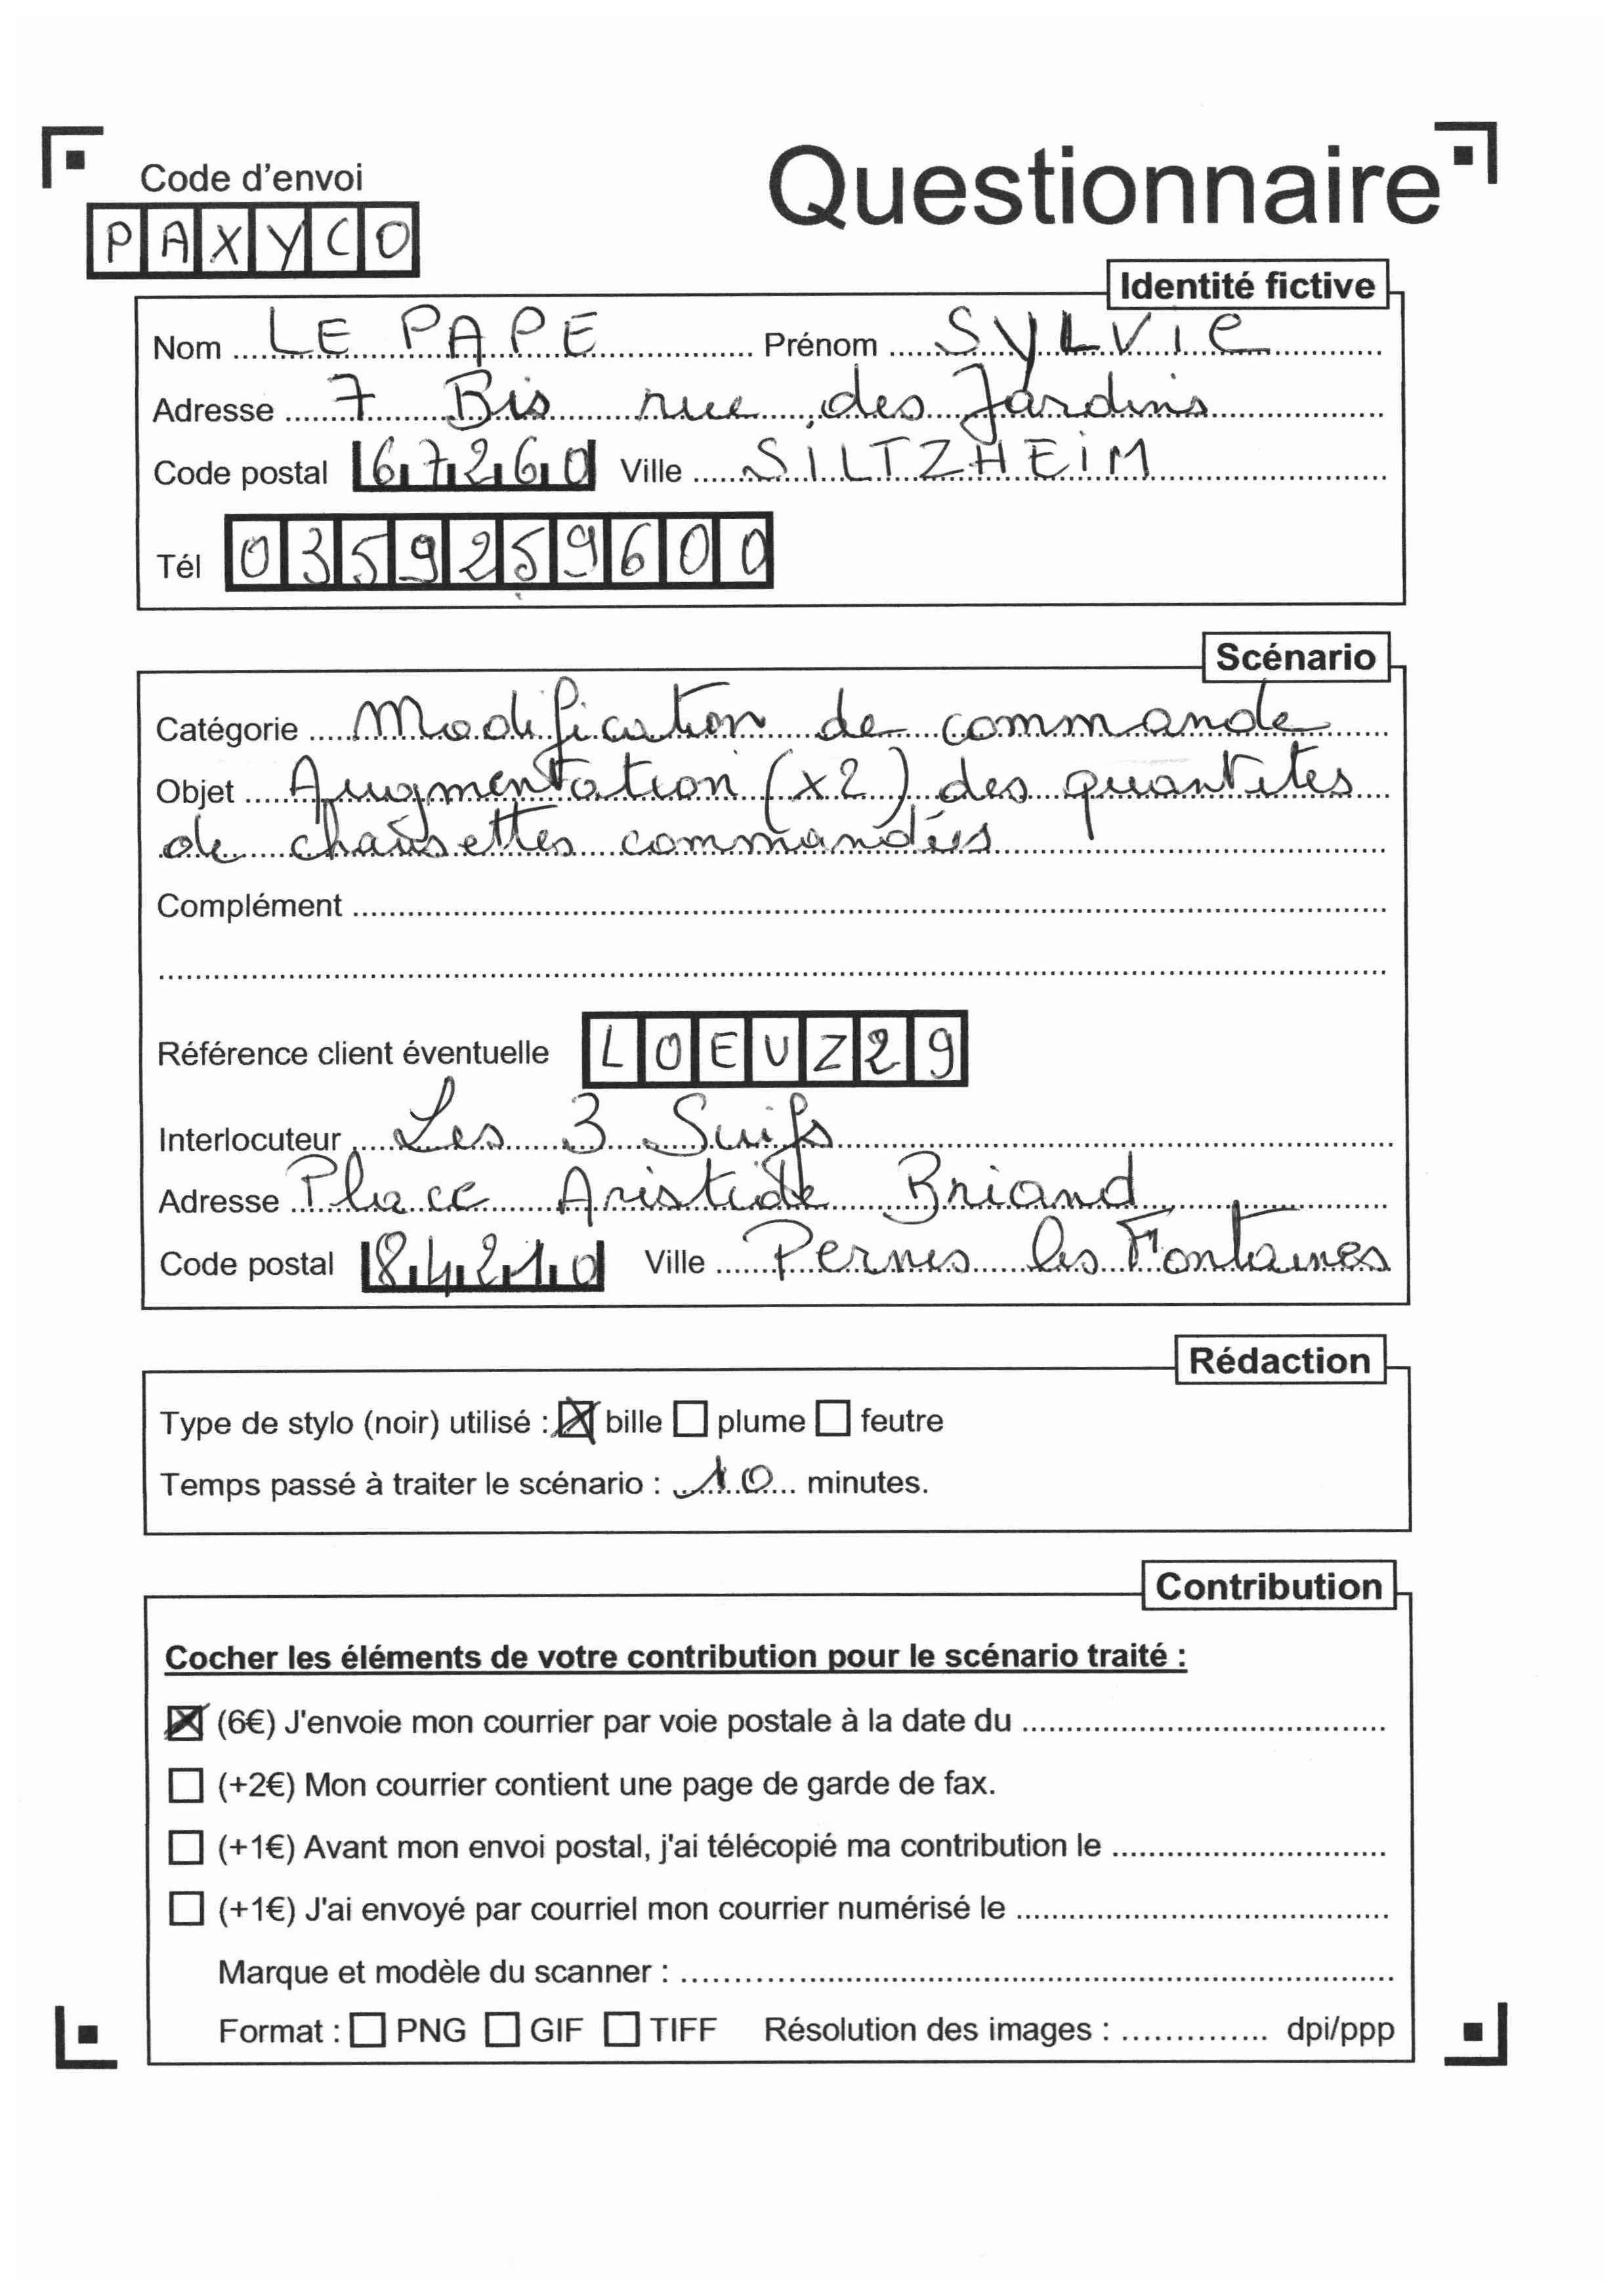 Code d'envoi
PAXYCO
Questionnaire
Identité fictive
Nom LE PAPE Prénom SYLVIE
Adresse 7 Bis rue des Jardins
Code postal 67260 Ville SILTZHEIM
Tél 0359259600
Scénario
Catégorie Modification de commande
Objet Augmentation (x2) des quantités
de chaussettes commandées
Complément
Référence client éventuelle LOEUZ29
Interlocuteur Les 3 Suifs
Adresse Place Aristide Briand
Code postal 84210 Ville Pernes les Fontaines
Rédaction
Type de stylo (noir) utilisé : ☒ bille ☐ plume ☐ feutre
Temps passé à traiter le scénario : 10 minutes.
Contribution
Cocher les éléments de votre contribution pour le scénario traité :
☒ (6€) J'envoie mon courrier par voie postale à la date du
☐ (+2€) Mon courrier contient une page de garde de fax.
☐ (+1€) Avant mon envoi postal, j'ai télécopié ma contribution le
☐ (+1€) J'ai envoyé par courriel mon courrier numérisé le
Marque et modèle du scanner :
Format : ☐ PNG ☐ GIF ☐ TIFF Résolution des images : dpi/ppp